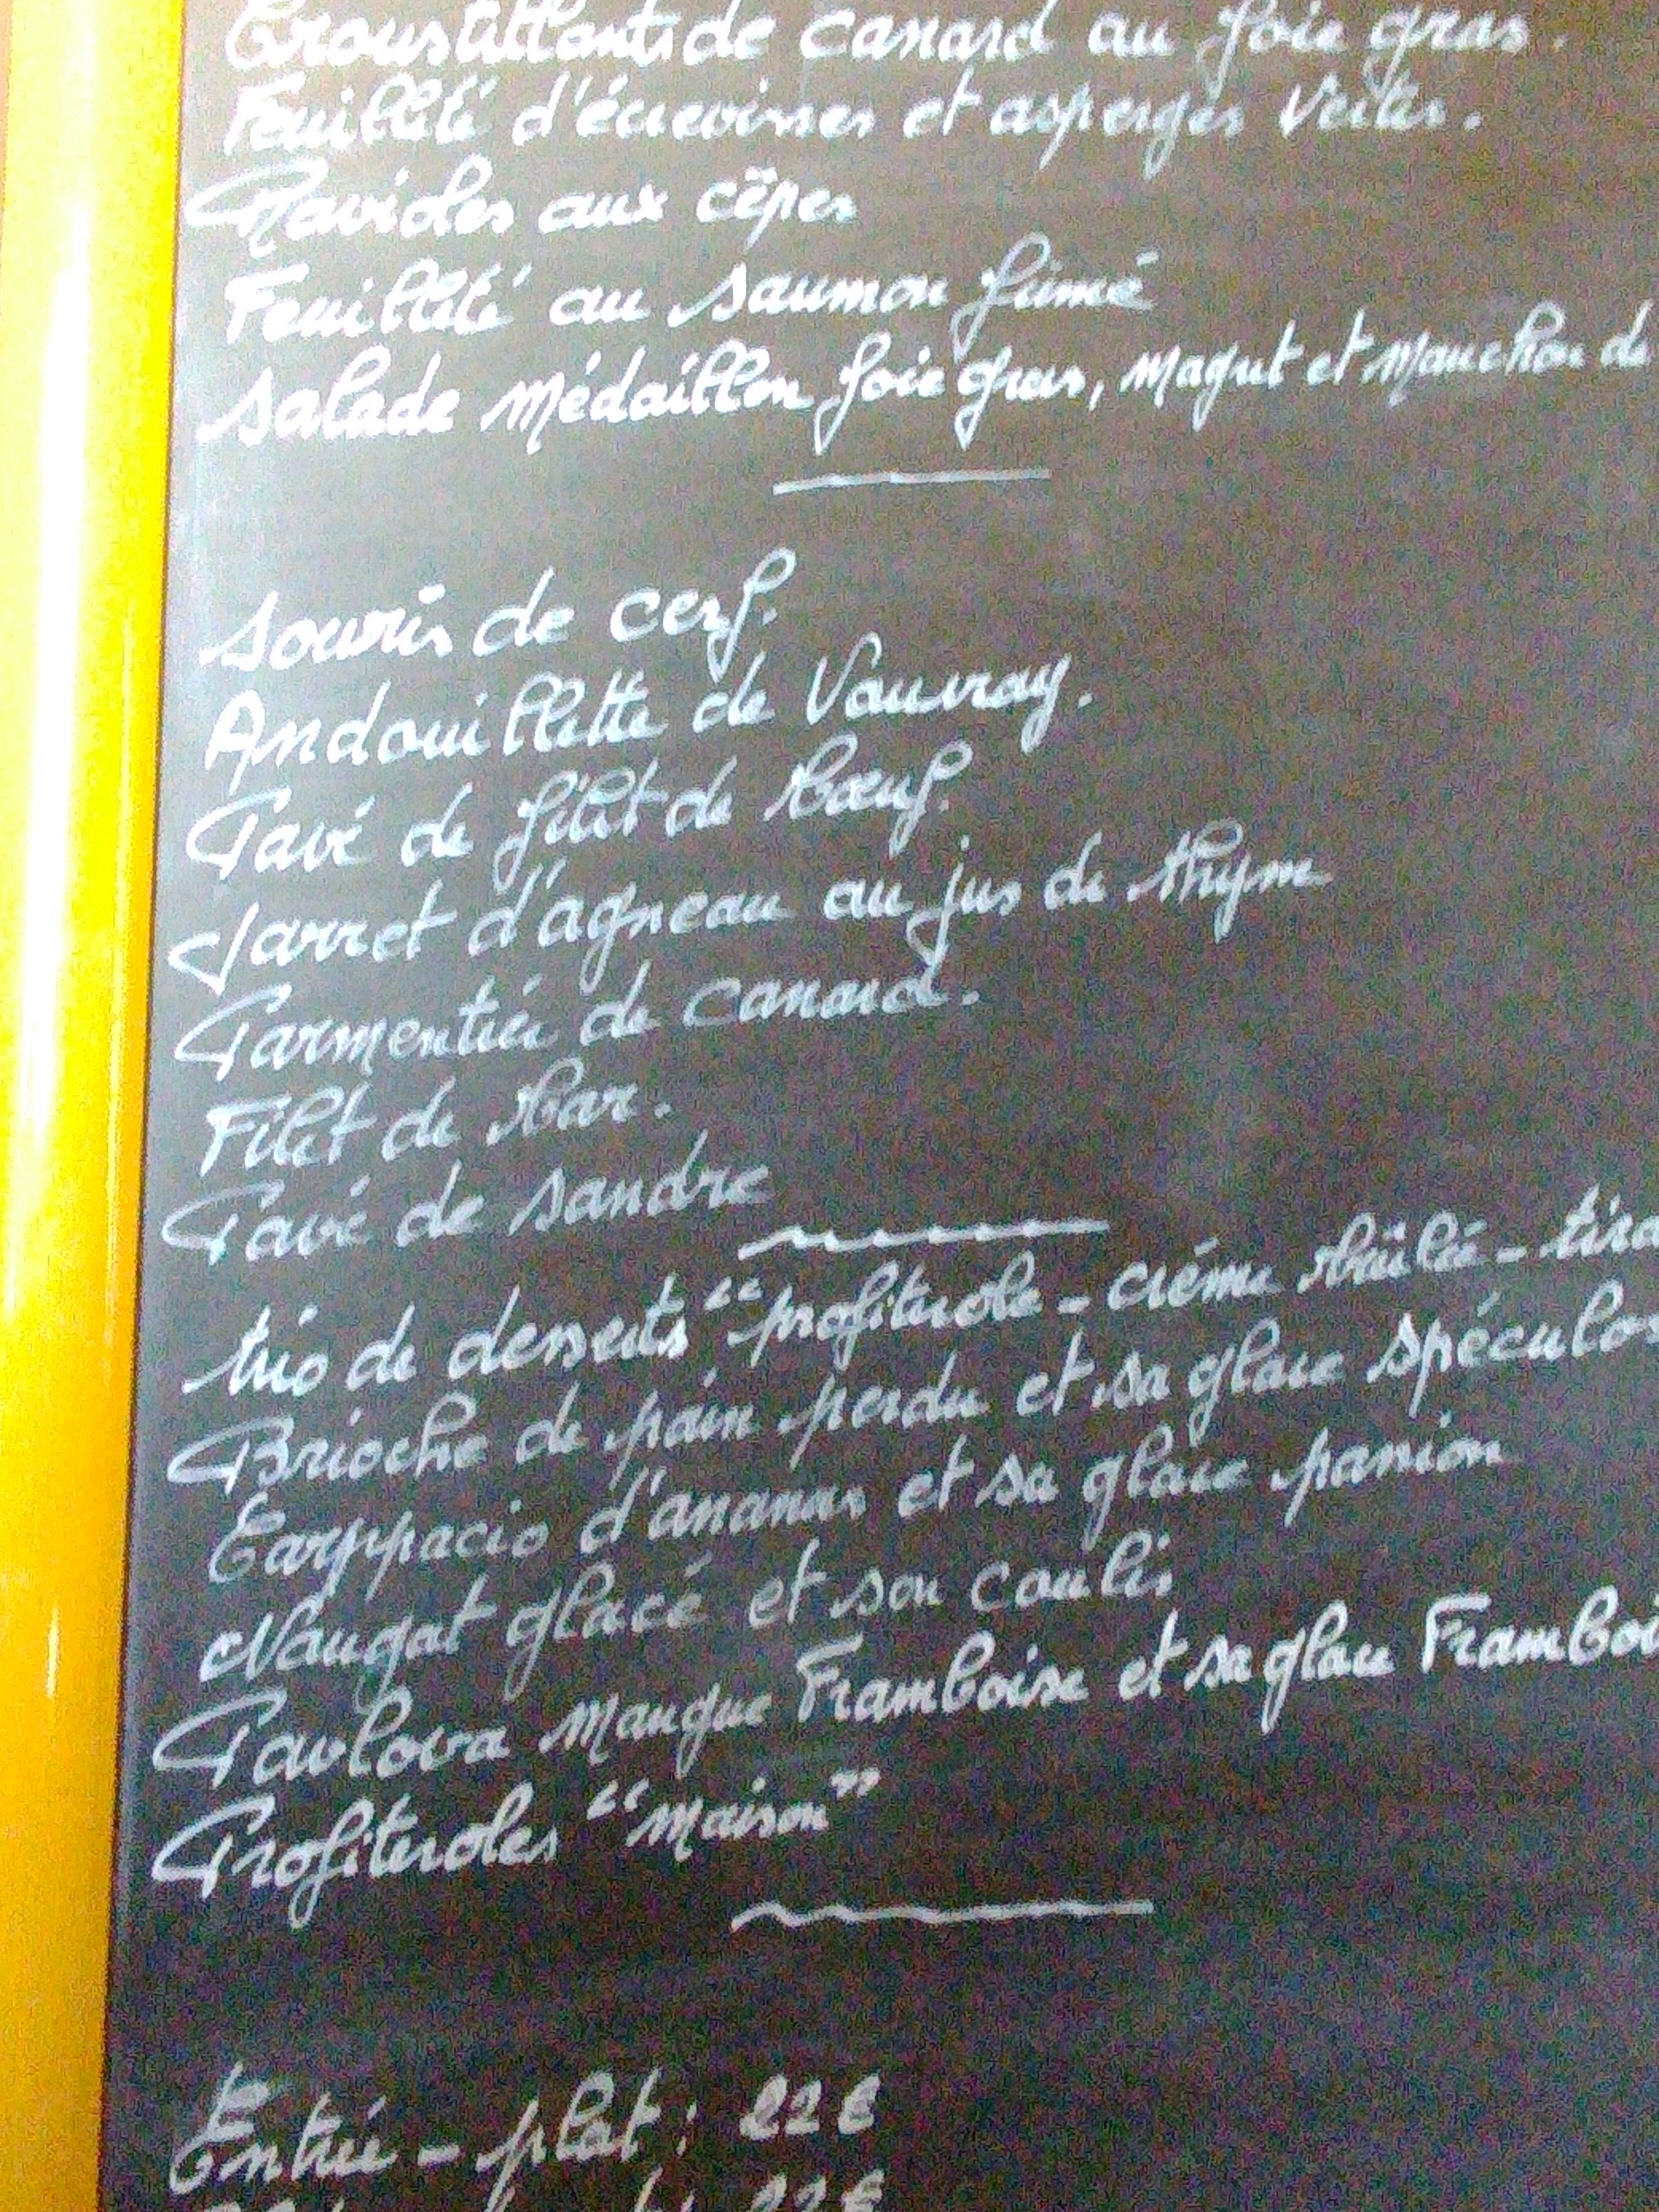 Croustillants de canard au foie gras.
Feuilleté d'écrevisses et asperges vertes.
Ravioles aux cêpes
Feuilleté au saumon fumé
Salade médaillon foie gras, magret et manchon de
Souris de cerf.
Andouillette de Vouvray.
Pavé de filet de bœuf.
Jarret d'agneau au jus de thym
Parmentier de canard.
Filet de bar.
Pavé de sandre
trio de desserts "profiterole - crème brûlée - tira
Brioche de pain perdu et sa glace spéculos
Carppacio d'ananas et sa glace passion
Nougat glacé et son coulis
Pavlova mangue Framboise et sa glace Framboi
Profiteroles "maison"
Entrée - plat : 22€
22€